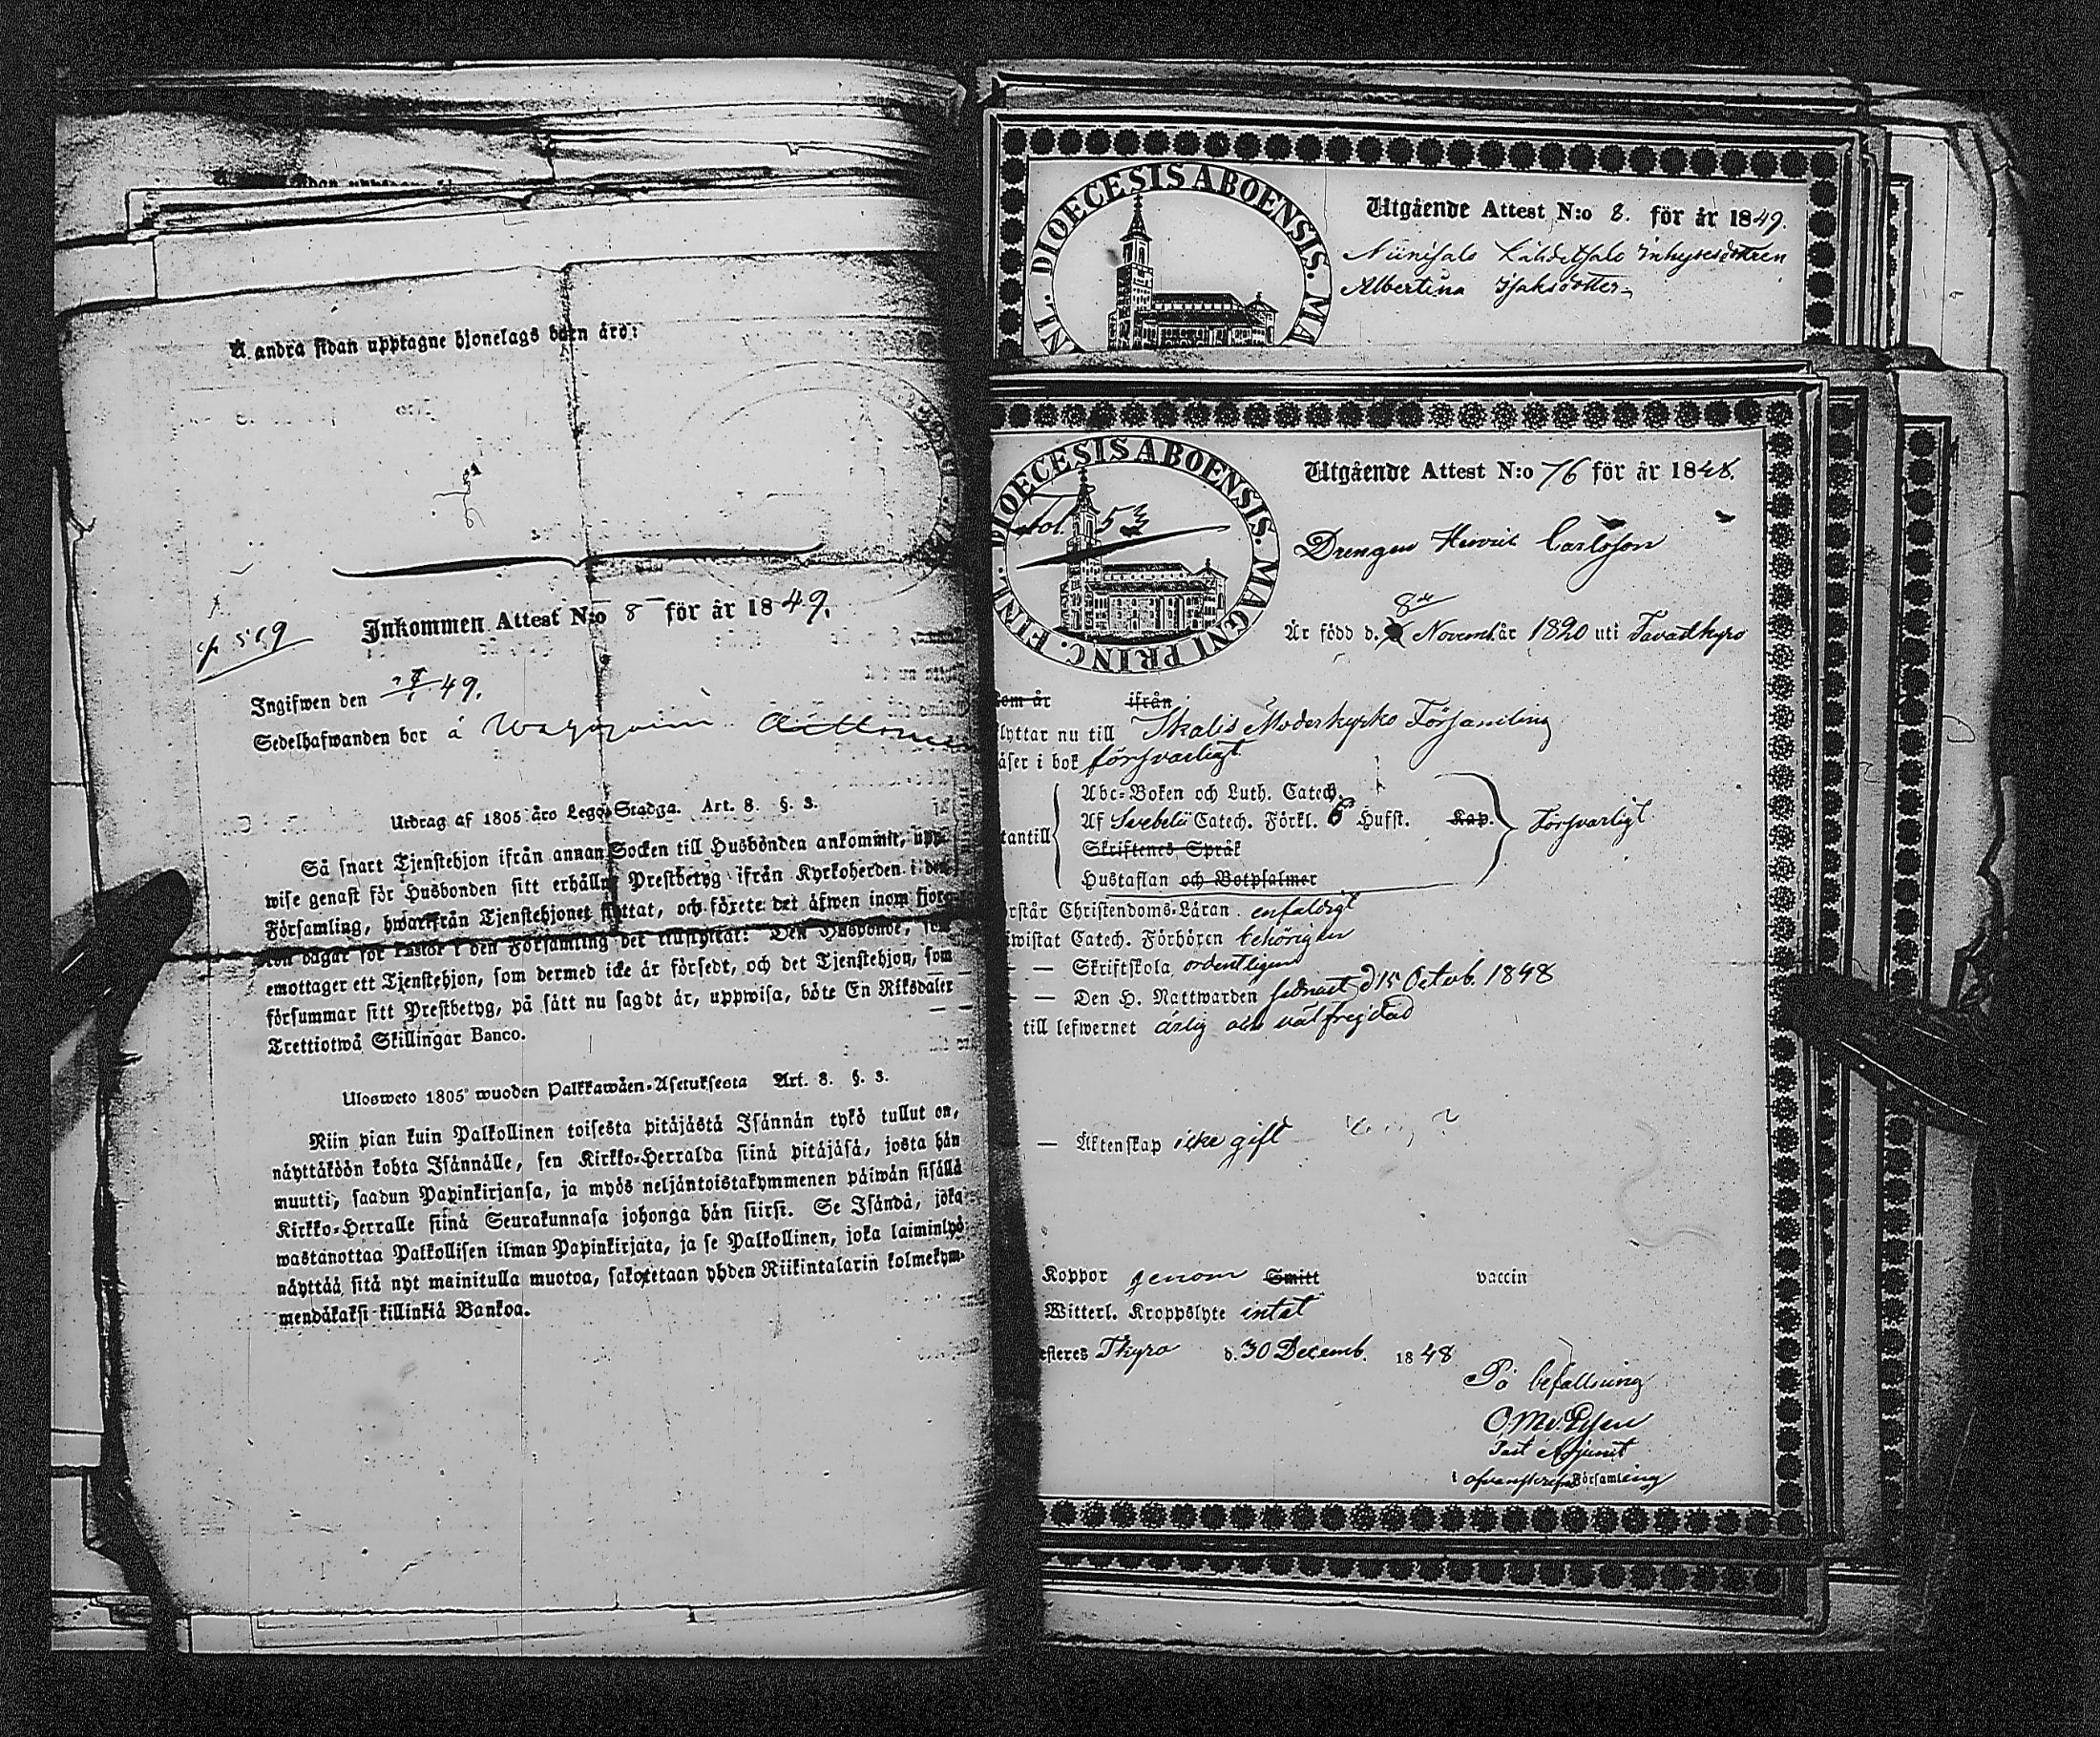 Å andra sidan upptagne hjonelags barn äro:
Inkommen Attest N:o 8 för år 1849.
p. 519
Ingifwen den 49.
Sedelhafwanden bor å
Utdrag af 1805 års Lego-Stadga. Art. 8. §. 3.
Så snart Tjenstehjon ifrån annan Socken till Husbonden ankommit, upp-
wise genast för Husbonden sitt erhållne Prestbetyg ifrån Kyrkoherden i den
Församling, hwarifrån Tjenstehjonet flyttat, och förete det äfwen inom fjor-
ton dagar för Pastor i den Församling det tillflyttat: Den Husbonde, som
emottager ett Tjenstehjon, som dermed icke är försedt, och det Tjenstehjon, som
försummar sitt Prestbetyg, på sätt nu sagdt är, uppwisa, böte En Riksdaler
Trettiotwå Skillingar Banco.
Ulosweto 1805 wuoden Palkkawäen-Asetuksesta Art. 8. §. 3.
Niin pian kuin Palkollinen toisesta pitäjästä Isännän tykö tullut on,
näyttäköön kohta Isännälle, sen Kirkko-Herralda siinä pitäjäsä, josta hän
muutti, saadun Papinkirjansa, ja myös neljäntoistakymmenen päiwän sisällä
Kirkko-Herralle siinä Seurakunnasa johonga hän siirsi. Se Isändä, joka
wastanottaa Palkollisen ilman Papinkirjata, ja se Palkollinen, joka laiminlyö
näyttää sitä nyt mainitulla muotoa, sakotetaan yhden Riikintalarin kolmekym-
mendäkaksi killinkiä Bankoa.
DIOECESIS ABOENSIS. MA
Utgående Attest N:o 8. för år 1849.
Albertina Isaksdotter
DIOECESIS ABOENSIS. MAGNI PRINC. FINL.
fol. 53
Utgående Attest N:o 76 för år 1848.
Drengen Henric Carlsson
8de
Är född d. Novemb. år 1820 uti Tavastkyro
om år ifrån
lyttar nu till Ikalis Moderkyrko Församling
äser i bok försvarligt
Abc-Boken och Luth. Catech.
Af Svebelii Catech. Förkl. 6 Hufst. Kap.
Skriftenes Språk
Hustaflan och Botpsalmer
tantill
Försvarligt
rstår Christendoms-Läran enfaldigt
wistat Catech. Förhören behörigen
— Skriftskola ordentligen
— Den H. Nattwarden sednast d 15 Octob. 1848
till lefwernet ärlig och välfrejdad
— Äktenskap icke gift
Koppor genom Smitt vaccin
Witterl. Kroppslyte intet
esteres Tkyro d. 30 Decemb. 1848
På befallning
Past Adjunct
i ofvanskrefne Församling